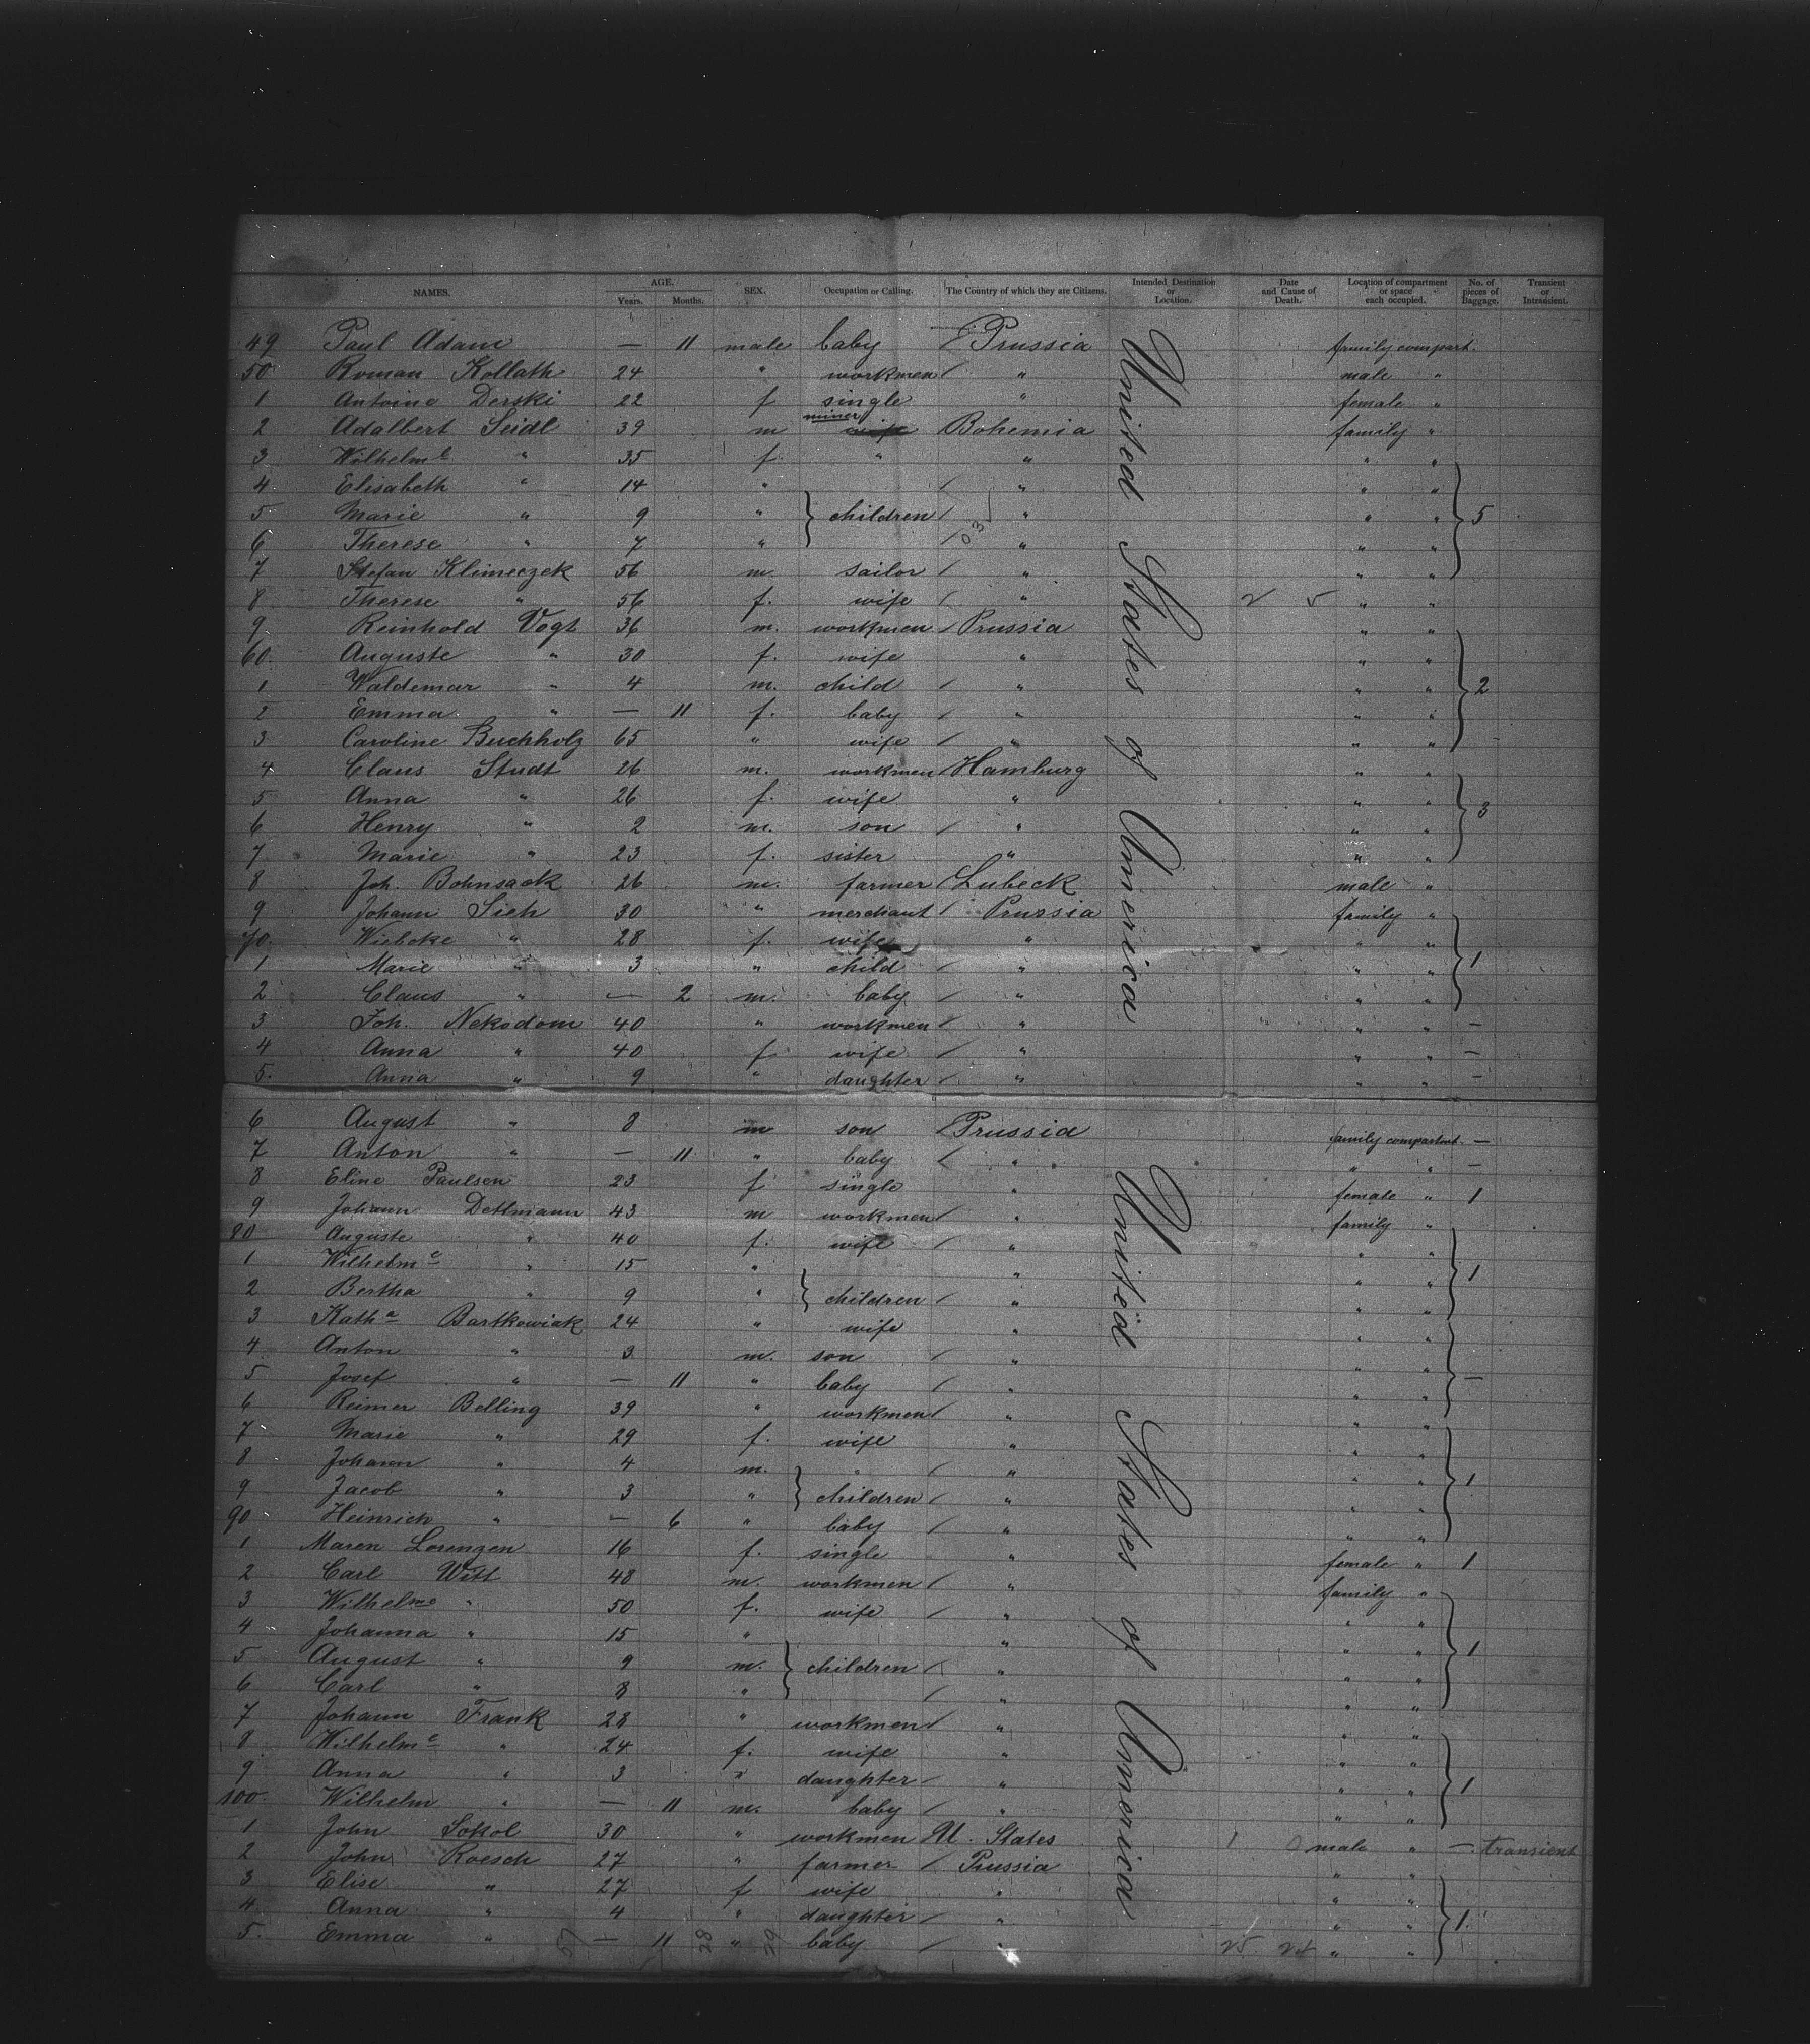 NAMES. AGE. Years. Months. SEX. Occupation or Calling. The Country of which they are Citizens. Intended Destination or Location. Date and Cause of Death. Location of compartment or space each occupied. No. of pieces of Baggage. Transient or Intransient.
49 Paul Adam — 11 male baby Prussia family compart.
50 Roman Kollath 24 " workmen " male "
1 Antoine Derski 22 f single " female "
miner
2 Adalbert Seidl 39 m Bohemia family "
3 Wilhelme " 35 f. " " " "
4 Elisabeth " 14 " " " "
5 Marie " 9 " children " " " 5
6 Therese " 7 " " " "
7 Stefan Klimeczek 56 m. sailor " " "
8 Therese " 56 f. wife " 2 5 " "
9 Reinhold Vogt 36 m. workmen Prussia " "
60. Auguste " 30 f. wife " " "
1 Waldemar " 4 m. child " " " 2
2 Emma " — 11 f. baby " " "
3 Caroline Buchholz 65 " wife " " "
4 Claus Studt 26 m. workmen Hamburg " "
5 Anna " 26 f. wife " " "
6 Henry " 2 m. son " " " 3
7 Marie " 23 f. sister " " "
8 Joh. Bohnsack 26 m. farmer Lubeck male "
9 Johann Sieh 30 " merchant Prussia family "
70. Wiebcke " 28 f. wife " " "
1 Marie " 3 " child " " " 1
2 Claus " — 2 m. baby " " "
3 Joh. Nekodom 40 " workmen " " " —
4 Anna " 40 f wife " " " —
5. Anna " 9 " daughter " " " —
United States of America
6 August " 8 m son Prussia family compartmt. —
7 Anton " — 11 " baby " " " —
8 Eline Paulsen 23 f single " female " 1
9 Johann Dettmann 43 m workmen " family "
80 Auguste " 40 f. wife " " "
1 Wilhelme " 15 " " " " 1
2 Bertha " 9 " children " " "
3 Katha Bartkowiak 24 " wife " " "
4 Anton " 3 m. son " " "
5 Josef " — 11 " baby " " " —
6 Reimer Belling 39 " workmen " " "
7 Marie " 29 f. wife " " "
8 Johann " 4 m. " " " "
9 Jacob " 3 " children " " " 1
90 Heinrich " — 6 " baby " " "
1 Maren Lorenzen 16 f. single " female " 1
2 Carl Witt 48 m. workmen " family "
3 Wilhelme " 50 f. wife " " "
4 Johanna " 15 " " " "
5 August " 9 m. children " " " 1
6 Carl " 8 " " " "
7 Johann Frank 28 " workmen " " "
8 Wilhelme " 24 f. wife " " "
9 Anna " 3 " daughter " " " 1
100 Wilhelm " — 11 m. baby " " "
1 John Sokol 30 " workmen U. States 1 0 male " — transient
2 John Roesch 27 " farmer Prussia " "
3 Elise " 27 f wife " " "
4 Anna " 4 " daughter " " " 1.
5. Emma " 57 — 11 28 " 29 baby " 25 24 " "
United States of America